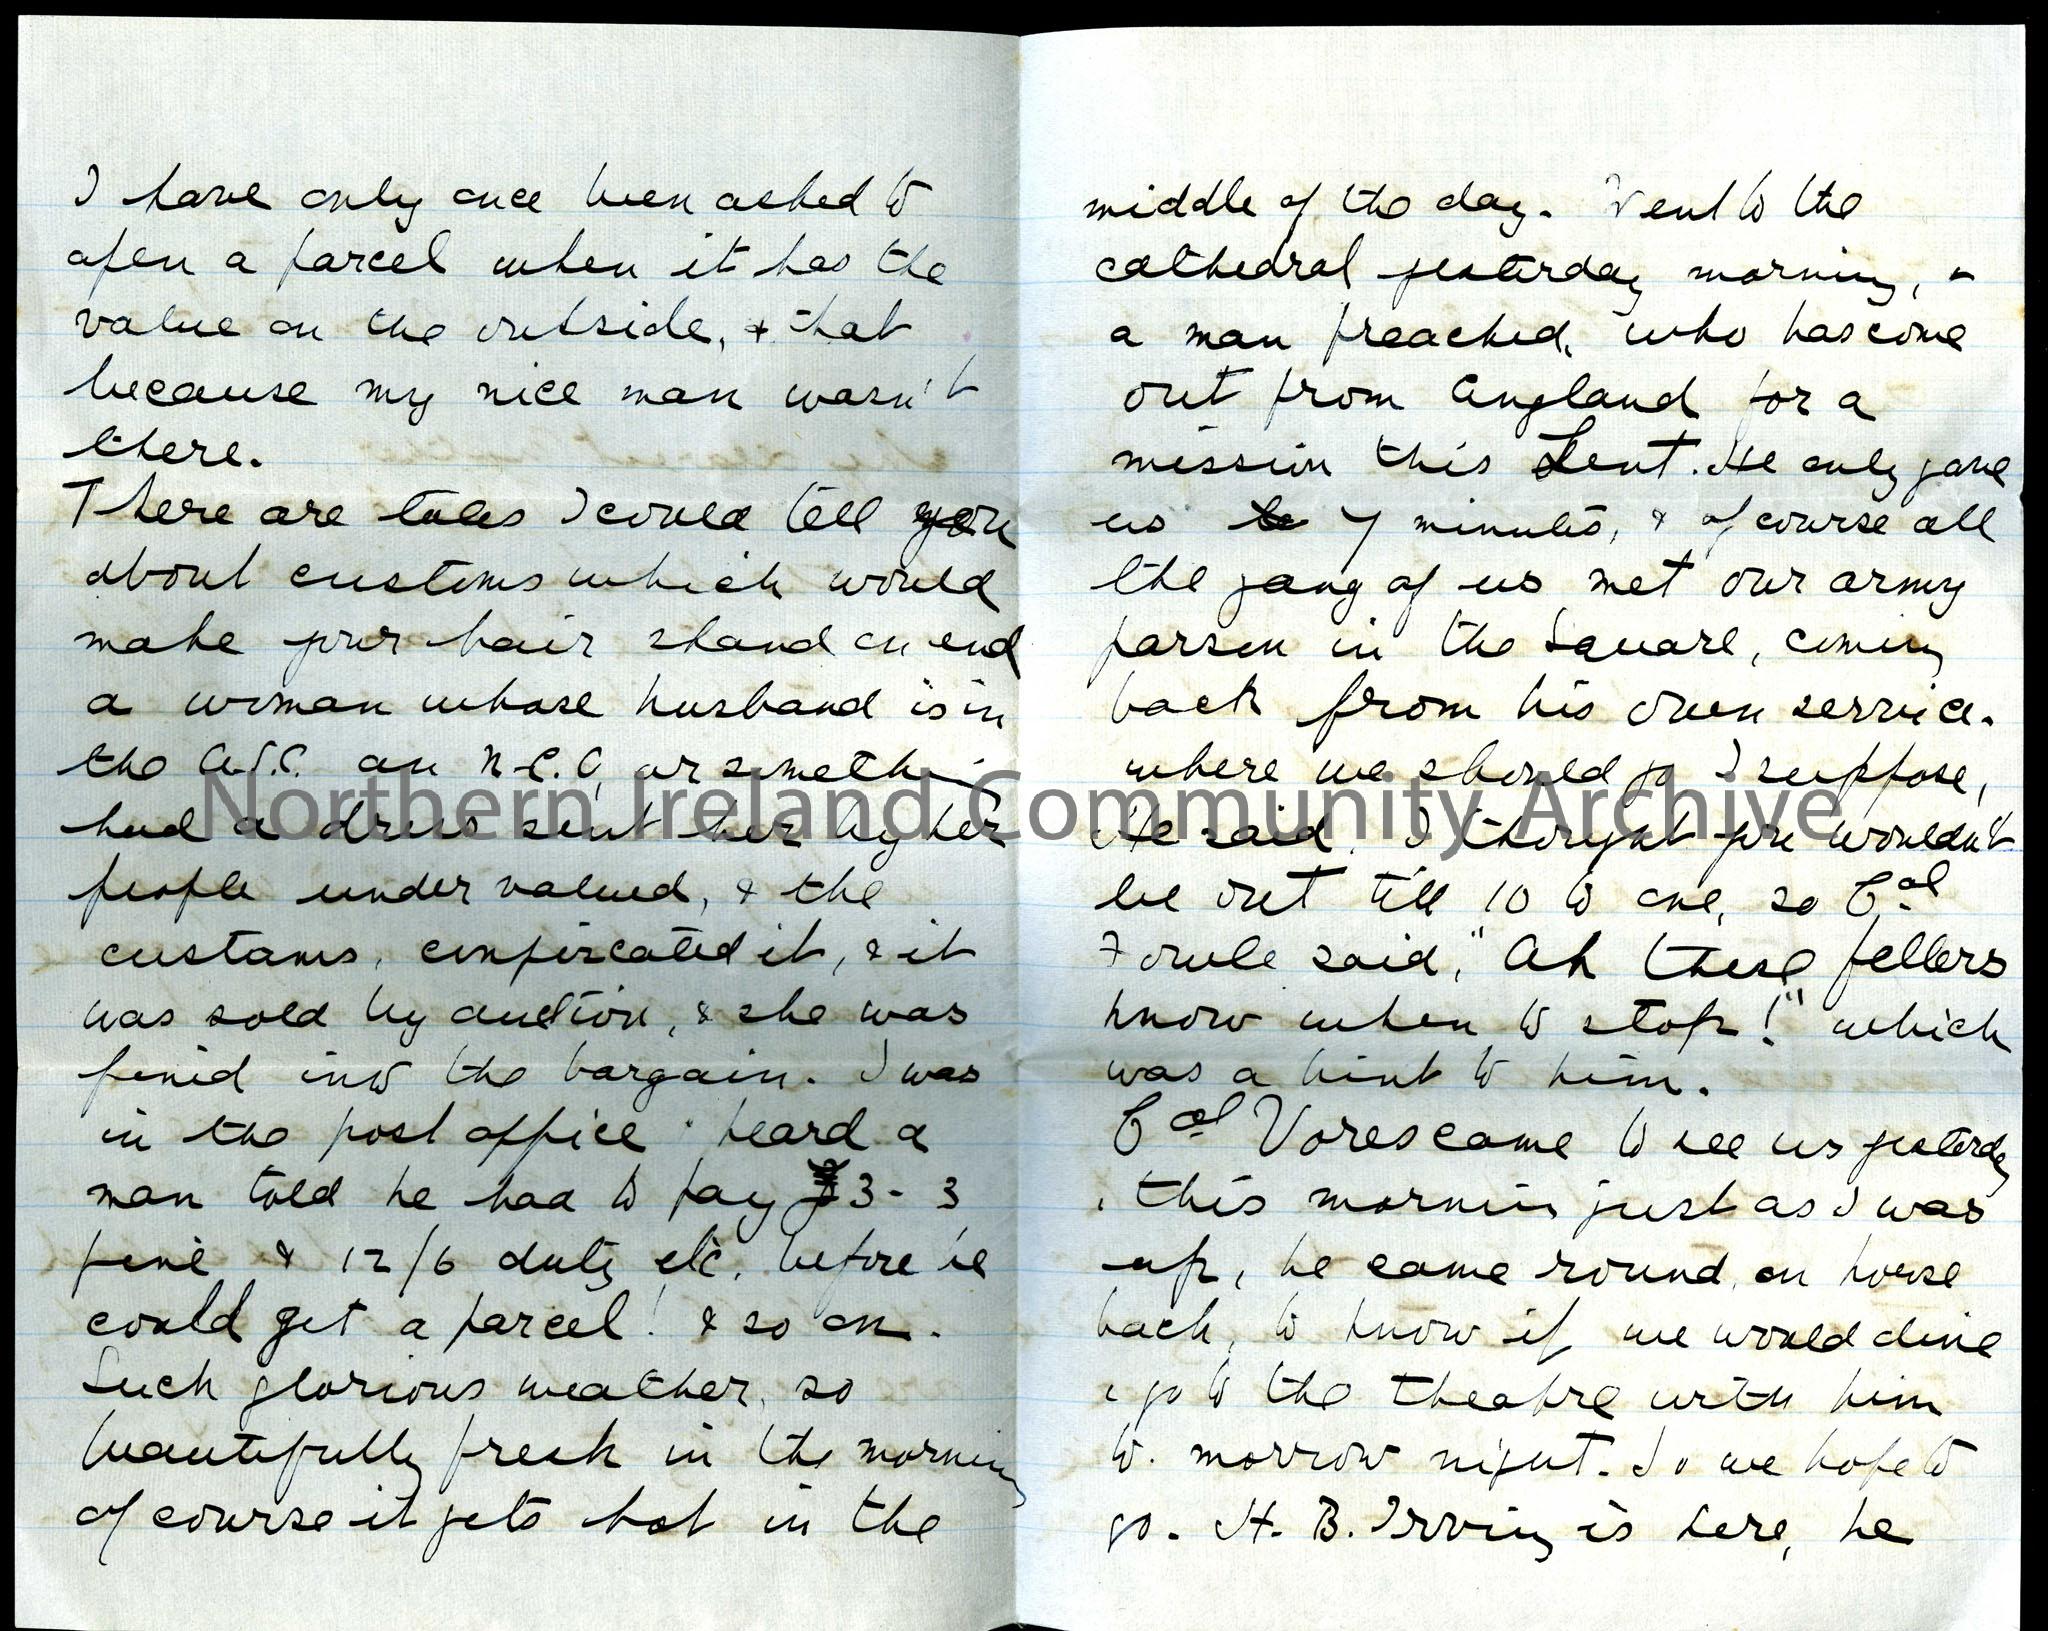 I have only once been asked to
open a parcel when it has the
value on the outside, & that
because my nice man wasn't
there.
There are tales I could tell you
about customs which would
make your hair stand on end
a woman whose husband is in
the A.S.C. an N.C.O, or something
had a dress sent her by her
people under valued, & the
customs, confiscated it, & it
was sold by auction, & she was
fined into the bargain. I was
in the post office & heard a
man told he had to pay £3-3
fine & 12/6 duty etc. before he
could get a parcel! & so on.
Such glorious weather, so
beautifully fresh in the morning
of course it gets hot in the
middle of the day. Went to the
cathedral yesterday morning, &
a man preached, who has come
out from England for a
mission this Lent. He only gave
us 7 minutes, & of course all
the gang of us met our army
parson in the Square, coming
back from his own service.
where we should go I suppose,
He said, I thought you wouldn't
be out till 10 to one, so Col
said, "Ah these fellers
know when to stop!" which
was a hint to him.
Col Vores came to see us yesterday
& this morning just as I was
up, he came round, on horse
back, to know if we would dine
& go to the theatre with him
to. morrow night. So we hope to
go. H. B. Irving is here, he
Northern Ireland Community Archive